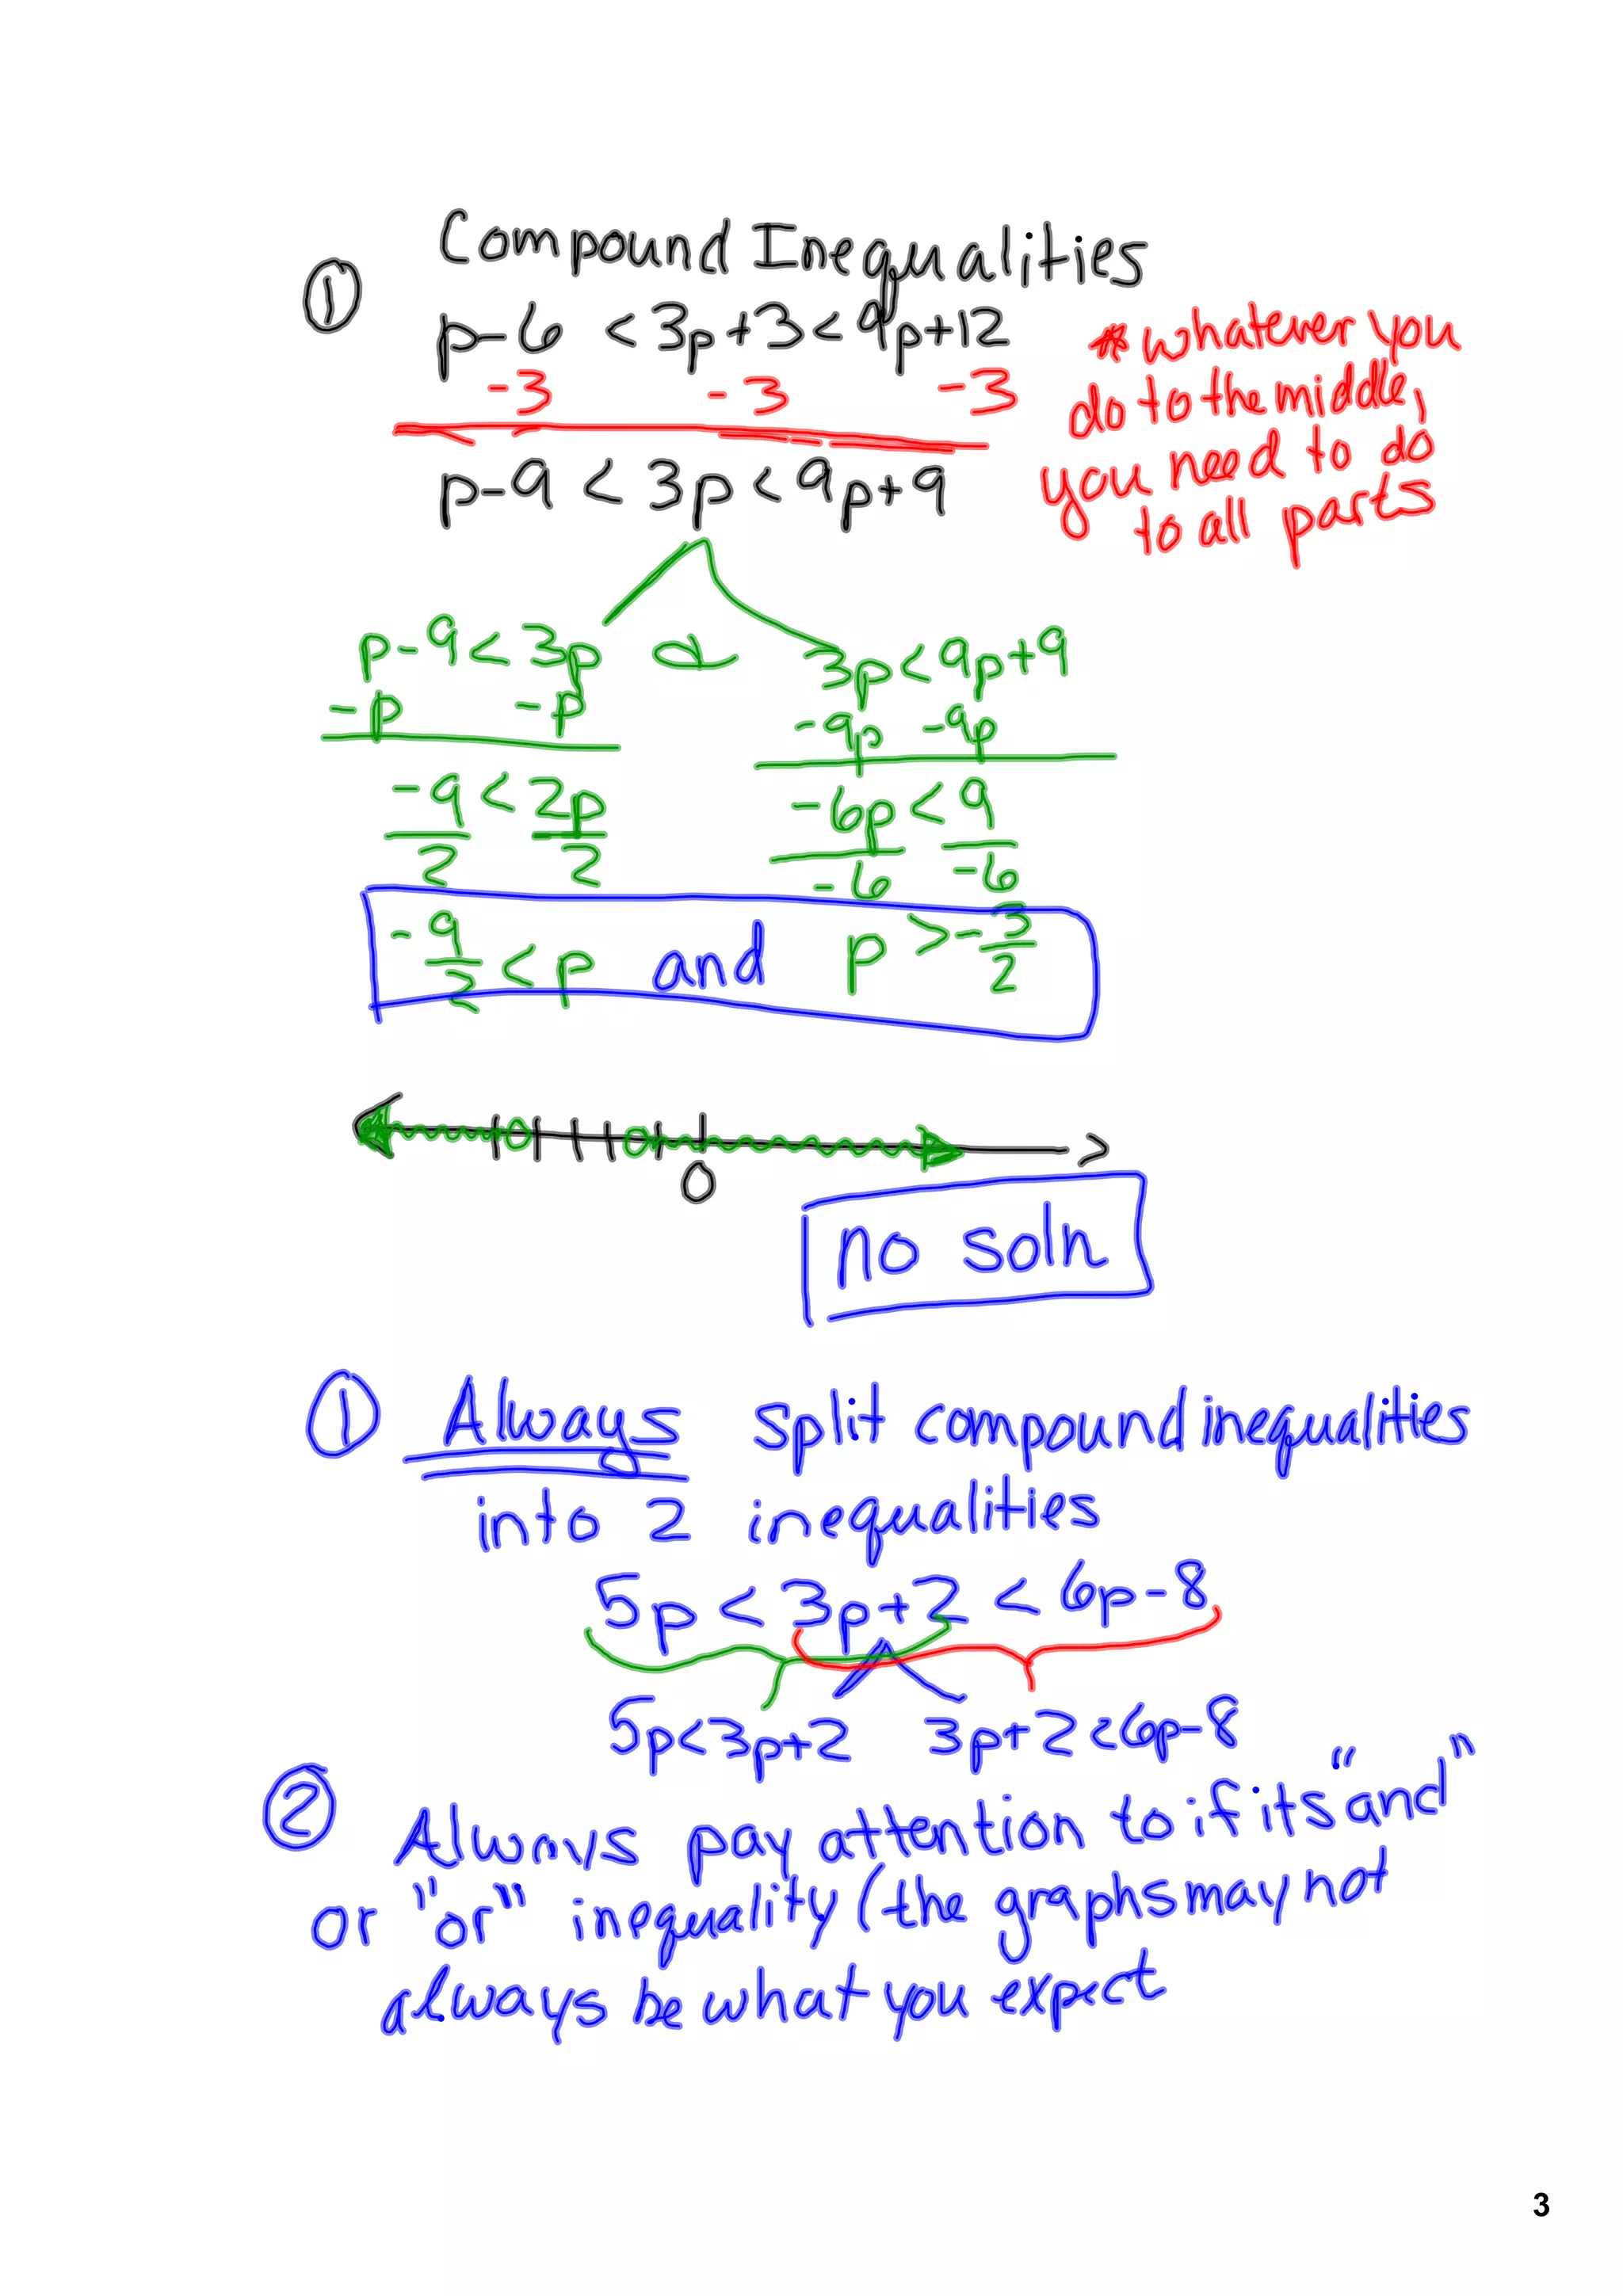 Compound Inequalities
①
p-6 < 3p+3 < 9p+12
-3 -3 -3
* whatever you
do to the middle,
you need to do
to all parts
p-9 < 3p < 9p+9
p-9 < 3p 3p < 9p+9
-p -p -9p -9p
-9 < 2p -6p < 9
2 2 -6 -6
-9/2 < p and p > -3/2
0
no soln
① Always split compound inequalities
into 2 inequalities
5p < 3p+2 < 6p-8
5p<3p+2 3p+2<6p-8
② Always pay attention to if its "and"
or "or" inequality (the graphs may not
always be what you expect
3